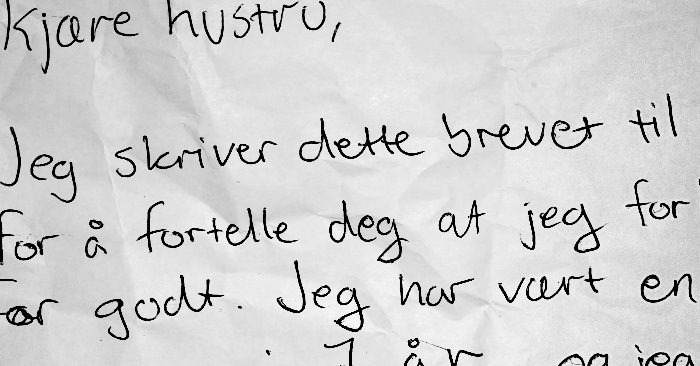 Kjære hustru,
Jeg skriver dette brevet til
for å fortelle deg at jeg for
for godt. Jeg har vært en
7 år og jeg